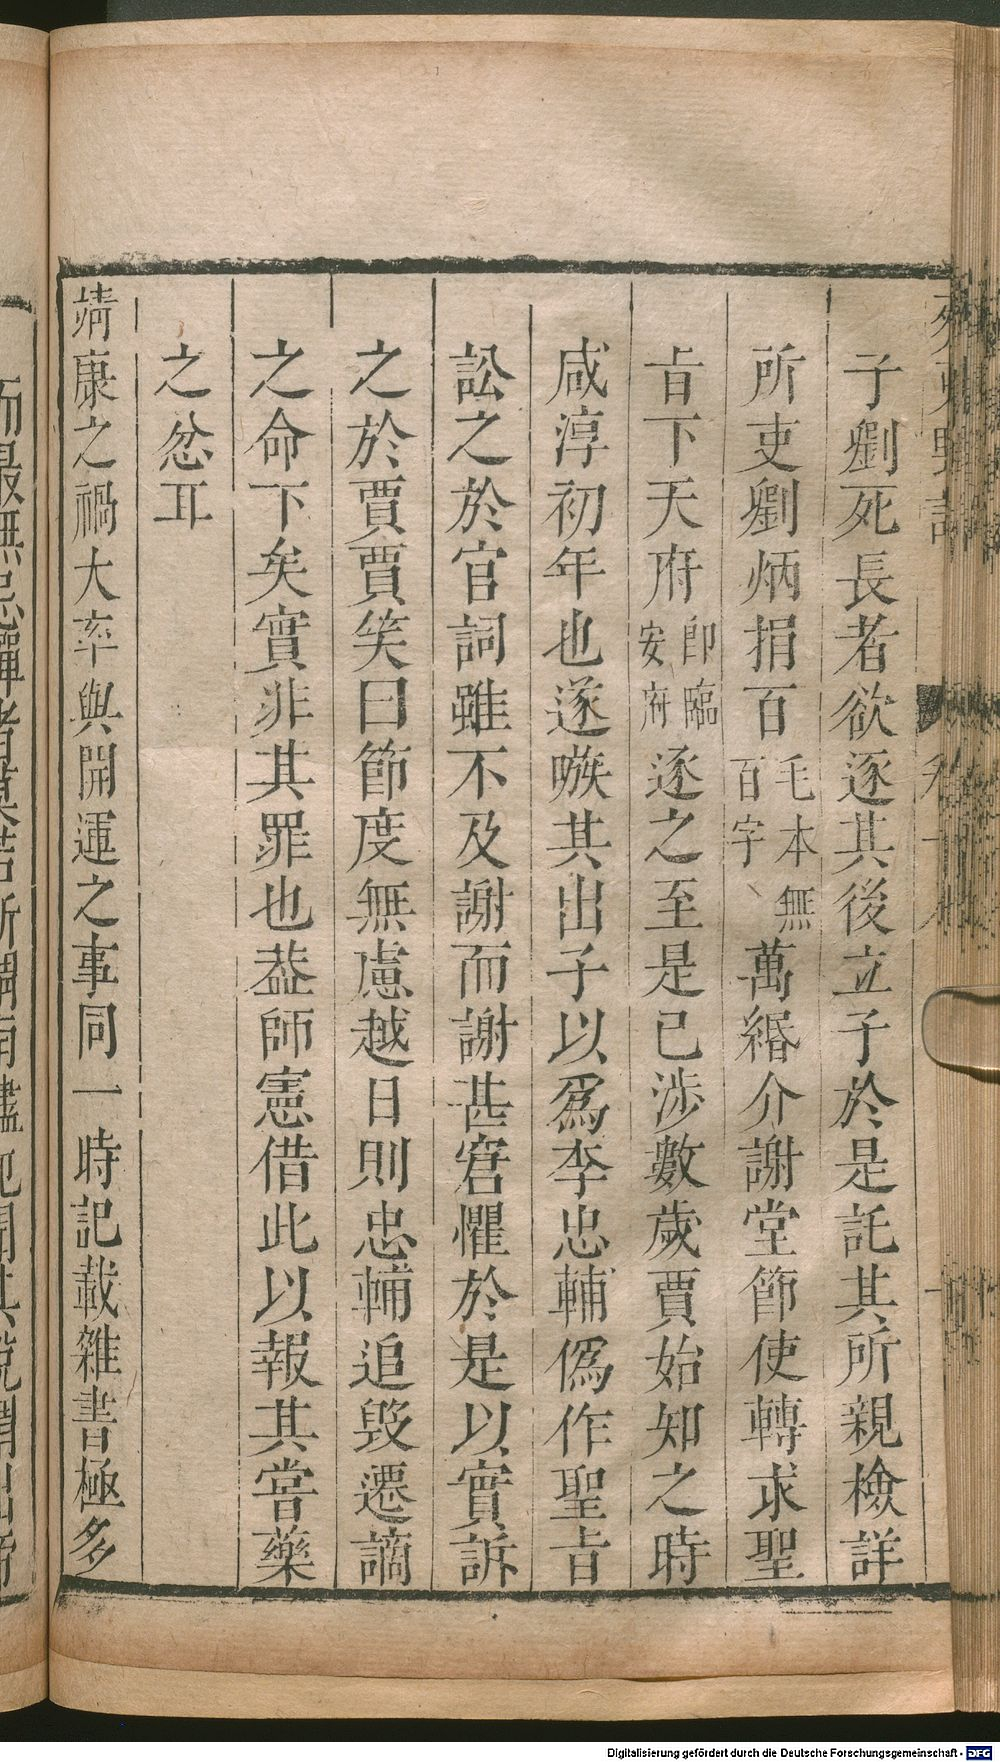 子劉死長者欲逐其後立子於是託其所親檢詳
所吏劉炳捐百毛本無百字萬緡介謝堂節使轉求聖
旨下天府即臨安府逐之至是已涉數歲賈始知之時
咸淳初年也遂嗾其出子以爲李忠輔僞作聖旨
訟之於官詞雖不及謝而謝甚窘懼於是以實訴
之於賈賈笑曰節度無慮越日則忠輔追毀遷謫
之命下矣實非其罪也葢師憲借此以報其嘗藥
之忿耳
靖康之禍大率與開運之事同一時記載雜書極多
Digitalisierung gefördert durch die Deutsche Forschungsgemeinschaft - DFG